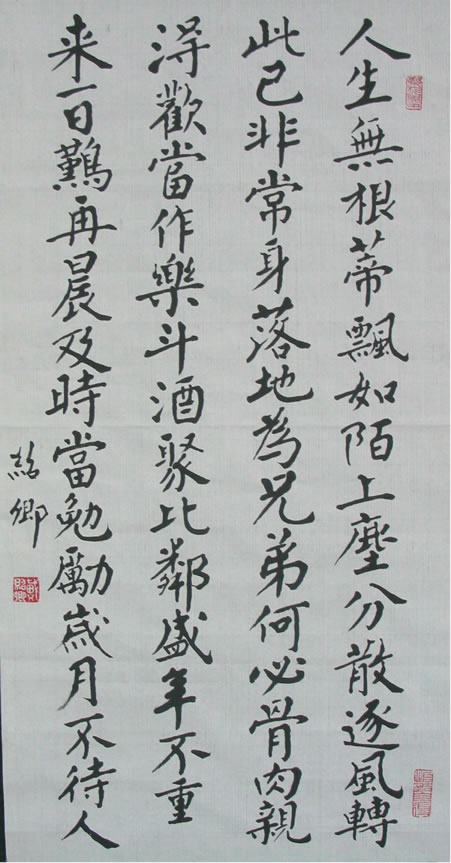 人生無根蒂飄如陌上塵分散逐風轉
此已非常身落地為兄弟何必骨肉親
得歡當作樂斗酒聚比鄰盛年不重
来一日難再晨及時當勉勵歲月不待人